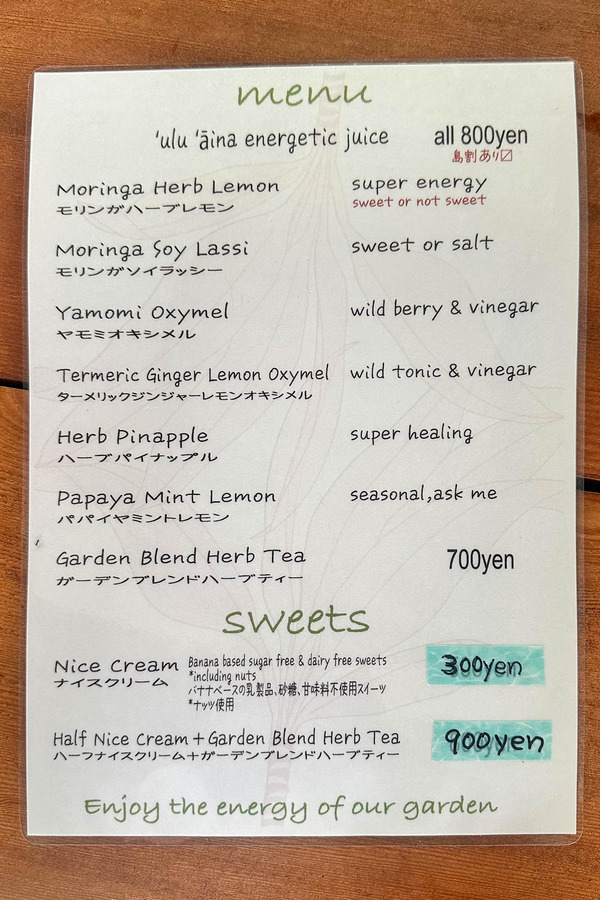 menu
'ulu 'āina energetic juice all 800yen
島割あり〼
Moringa Herb Lemon super energy
モリンガハーブレモン sweet or not sweet
Moringa Soy Lassi sweet or salt
モリンガソイラッシー
Yamomi Oxymel wild berry & vinegar
ヤモミオキシメル
Termeric Ginger Lemon Oxymel wild tonic & vinegar
ターメリックジンジャーレモンオキシメル
Herb Pinapple super healing
ハーブパイナップル
Papaya Mint Lemon seasonal,ask me
パパイヤミントレモン
Garden Blend Herb Tea 700yen
ガーデンブレンドハーブティー
sweets
Nice Cream Banana based sugar free & dairy free sweets 300yen
ナイスクリーム *including nuts
バナナベースの乳製品、砂糖、甘味料不使用スイーツ
*ナッツ使用
Half Nice Cream+Garden Blend Herb Tea 900yen
ハーフナイスクリーム+ガーデンブレンドハーブティー
Enjoy the energy of our garden